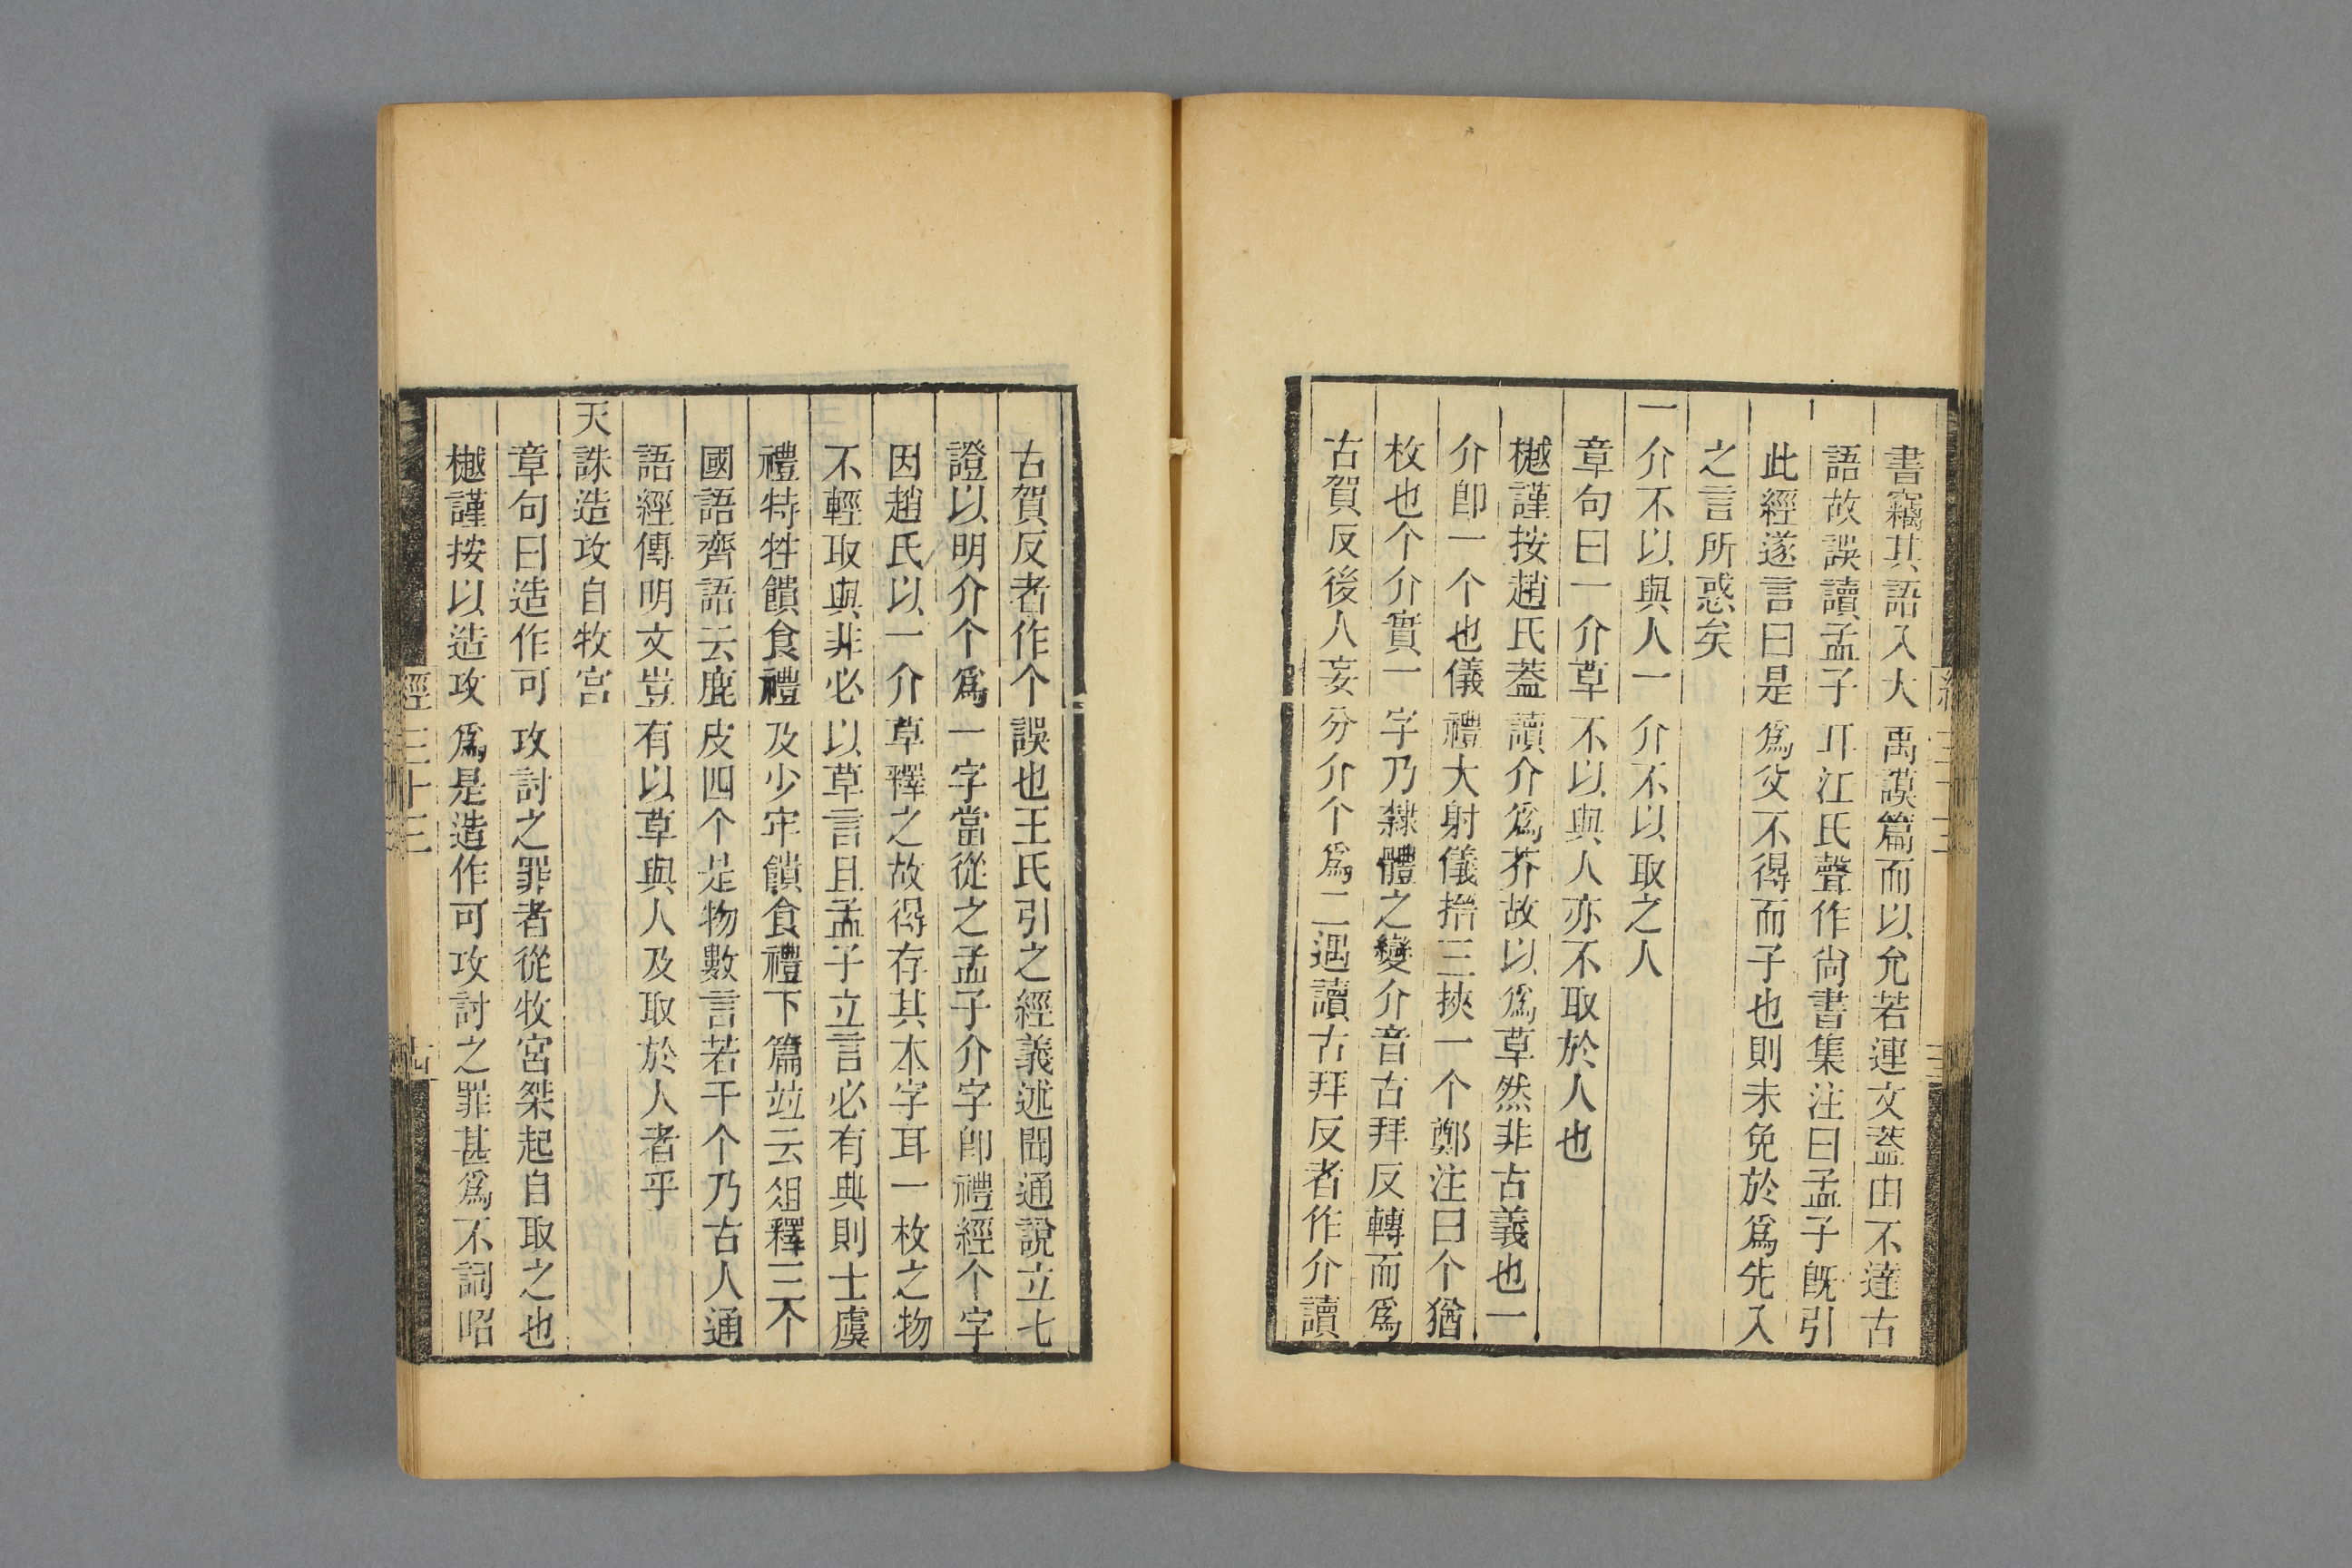 書竊其語入大禹謨篇而以允若連文蓋由不達古
語故誤讀孟子耳江氏聲作尚書集注曰孟子旣引
此經遂言曰是爲父不得而子也則未免於爲先入
之言所惑矣
一介不以與人一介不以取之人
章句曰一介草不以與人亦不取於人也
樾謹按趙氏蓋讀介爲芥故以爲草然非古義也一
介卽一个也儀禮大射儀搢三挾一个鄭注曰个猶
枚也个介實一字乃隸體之變介音古拜反轉而爲
古賀反後人妄分介个爲二遇讀古拜反者作介讀
古賀反者作个誤也王氏引之經義述聞通說立七
證以明介个爲一字當從之孟子介字卽禮經个字
因趙氏以一介草釋之故得存其本字耳一枚之物
不輕取與非必以草言且孟子立言必有典則士虞
禮特牲饋食禮及少牢饋食禮下篇竝云俎釋三个
國語齊語云鹿皮四个是物數言若干个乃古人通
語經傳明文豈有以草與人及取於人者乎
天誅造攻自牧宮
章句曰造作可攻討之罪者從牧宮桀起自取之也
樾謹按以造攻爲是造作可攻討之罪甚爲不詞昭
經三十三